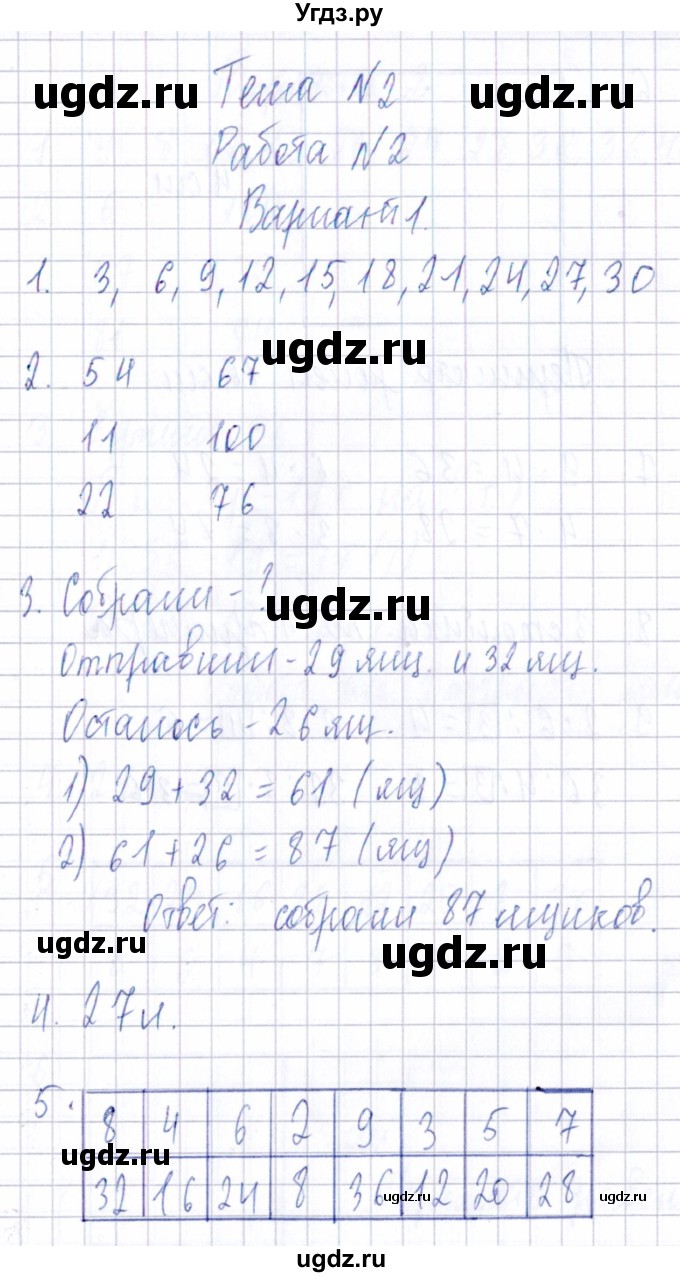 Угдз.ру
ugdz.ru ugdz.ru
Тема №2
Работа №2
Вариант 1.
1. 3, 6, 9, 12, 15, 18, 21, 24, 27, 30
ugdz.ru
2. 54 67
11 100
22 76
3. Собрали - ?
ugdz.ru
Отправили - 29 ящ. и 32 ящ.
Осталось - 26 ящ.
1) 29 + 32 = 61 (ящ)
2) 61 + 26 = 87 (ящ)
Ответ: собрали 87 ящиков.
ugdz.ru ugdz.ru
4. 27 л.
5. 8 4 6 2 9 3 5 7
ugdz.ru
32 16 24 8 36 12 20 28
ugdz.ru ugdz.ru
ugdz.ru